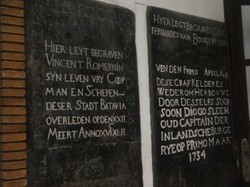 HIER LEYT BEGRAVEN
VINCENT ROMEYNIN
SYN LEVEN VRY COOP
MAN EN SCHEPEN
DESER STADT BATAVIA
OVERLEDEN OPDEN XXII
MEERT ANNO
HYER LEGT BEGRAVEN
FERNANDES VAN
VEN DEN PRIMO APRIL
DESE GRAF KELDER ES
WEDEROM HERBOUWT
DOOR DESSELFS SOON
SOON DIOGO SLEEM
OUD CAPITAIN DER
INLANDSCHE BURGE
RYE OP PRIMO MAART
1734